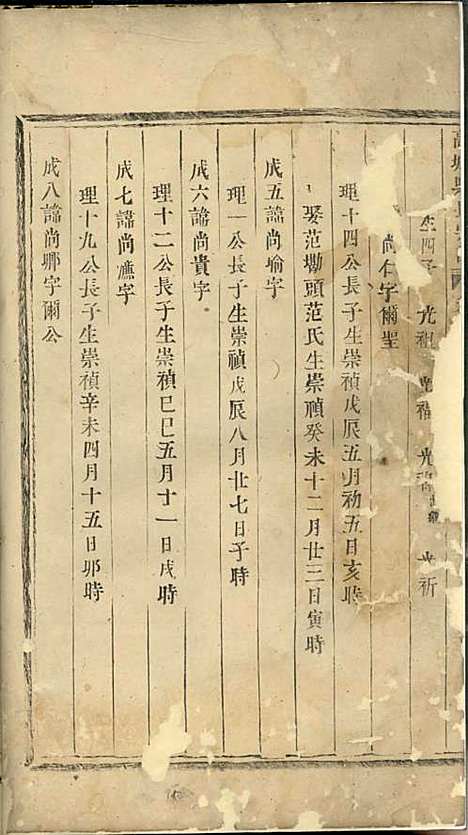 生四子 光祖 光裕 光
尚仁字爾聖
理十四公長子生崇禎戊辰五月初五日亥時
娶范墈頭范氏生崇禎癸未十二月廿三日寅時
成五諱尚瑜字
理一公長子生崇禎戊辰八月廿七日子時
成六諱尚貴字
理十二公長子生崇禎己巳五月十一日戌時
成七諱尚應字
理十九公長子生崇禎辛未四月十五日卯時
成八諱尚卿字爾公